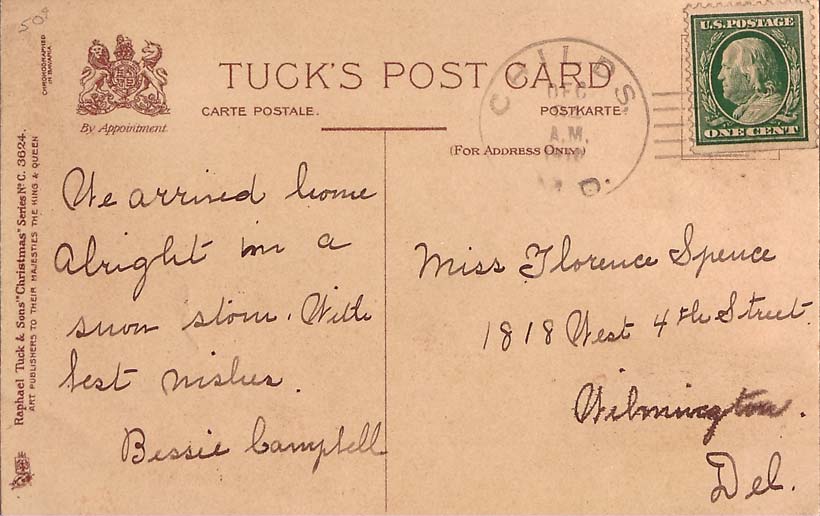 50¢
CHROMOGRAPHED
IN BAVARIA
By Appointment.
TUCK'S POST CARD
CARTE POSTALE.
POSTKARTE
(FOR ADDRESS ONLY.)
CHILDS.
DEC
A.M.
D.
U.S. POSTAGE
ONE CENT
Raphael Tuck & Sons' "Christmas" Series Nº C. 3624.
ART PUBLISHERS TO THEIR MAJESTIES THE KING & QUEEN
We arrived home
Alright in a
snow storm. With
best wishes.
Bessie Campbell
Miss Florence Spence
1818 West 4th Street.
Wilmington.
Del.